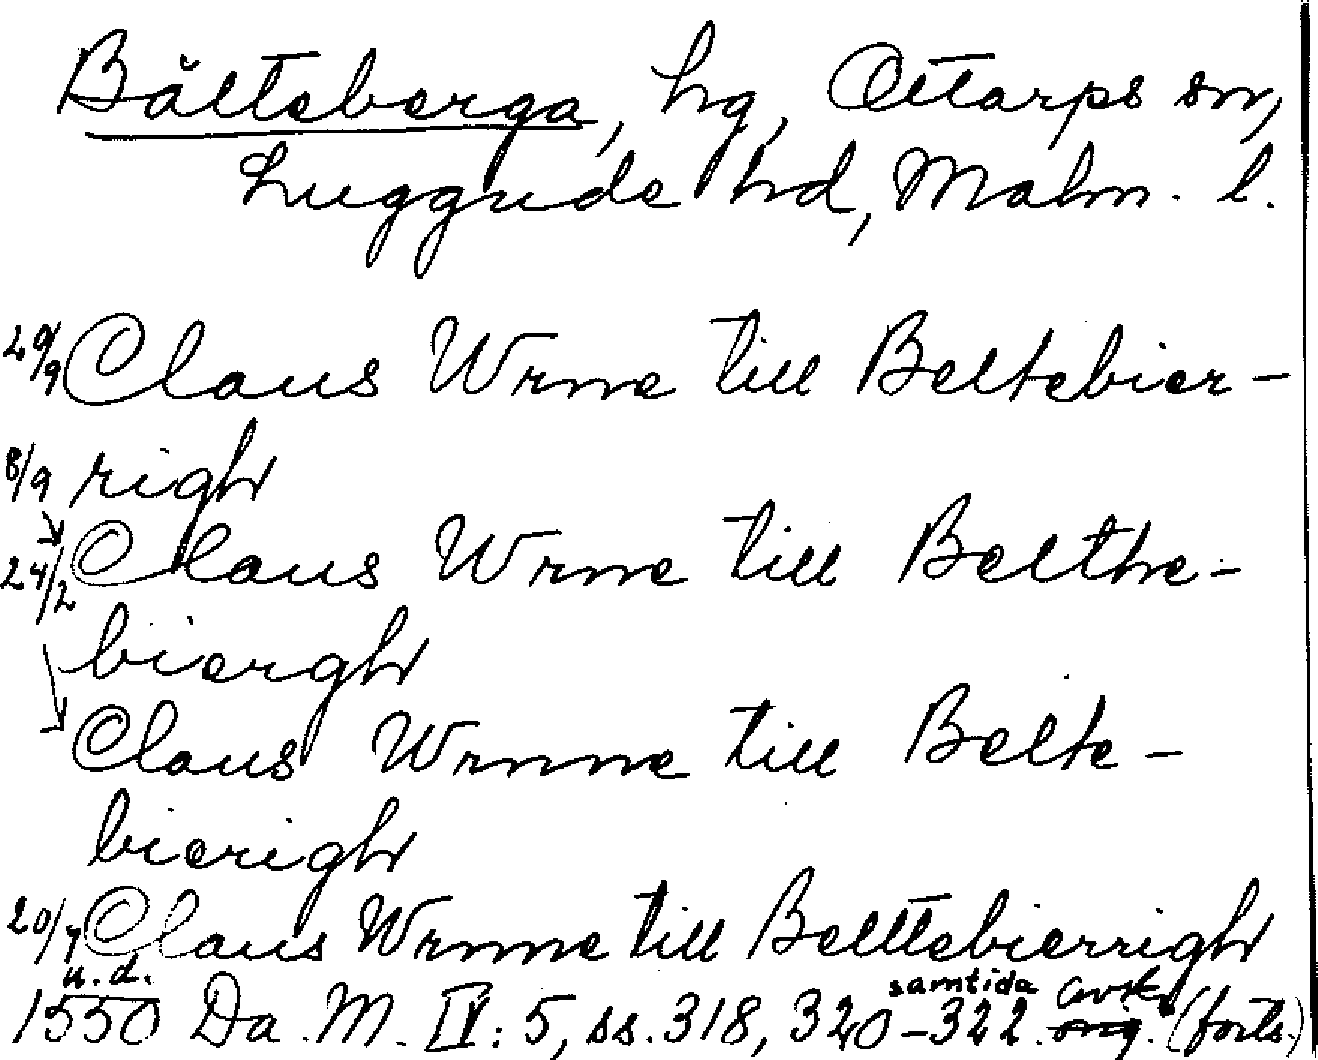 Bälteberga, hg, Ottarps sn,
Luggude hd, Malm. l.
29/9 Claus Wrne till Beltebier-
8/9 righ
24/2 Claus Wrne till Belthe-
biergh
Claus Wrnne till Belte-
bierigh
20/7 Claus Wrnne till Belttebierrigh
u. d. samtida avskr.
1550 Da. M. IV: 5, ss. 318, 320-322. orig. (forts.)